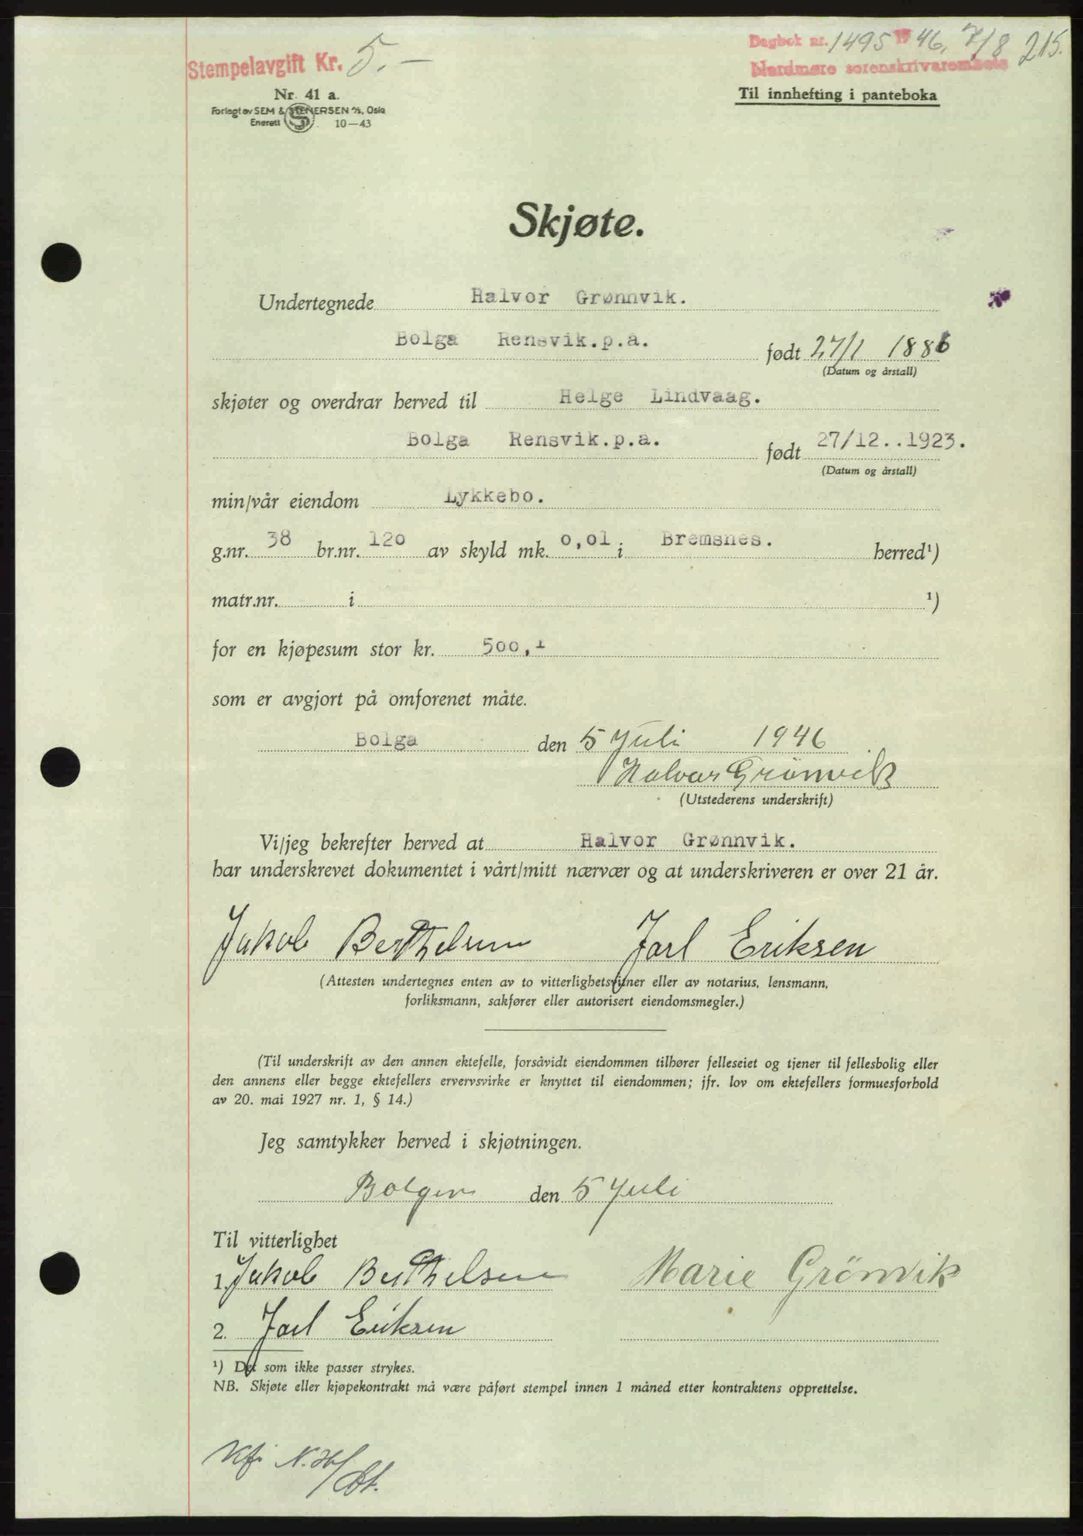 Stempelavgift Kr. 5.-
Dagbok nr. 1495 1946, 7/8 215.
Nordmøre sorenskrivarembete
Nr. 41 a.
Forlagt av SEM & STENERSEN A/S, Oslo
Enerett S 10-43
Til innhefting i panteboka
Skjøte.
Undertegnede Halvor Grønnvik.
Bolga Rensvik.p.a. født 27/1 1886
(Datum og årstall)
skjøter og overdrar herved til Helge Lindvaag.
Bolga Rensvik.p.a. født 27/12..1923.
(Datum og årstall)
min/vår eiendom Lykkebo.
g.nr. 38 br.nr. 120 av skyld mk. 0,01 i Bremsnes. herred¹)
matr.nr. i ¹)
for en kjøpesum stor kr. 500,-
som er avgjort på omforenet måte.
Bolga den 5 Juli 1946
Halvor Grönvik
(Utstederens underskrift)
Vi/jeg bekrefter herved at Halvor Grønnvik.
har underskrevet dokumentet i vårt/mitt nærvær og at underskriveren er over 21 år.
Jakob Berthelsen Jarl Eriksen
(Attesten undertegnes enten av to vitterlighetsvitner eller av notarius, lensmann,
forliksmann, sakfører eller autorisert eiendomsmegler.)
(Til underskrift av den annen ektefelle, forsåvidt eiendommen tilhører felleseiet og tjener til fellesbolig eller
den annens eller begge ektefellers ervervsvirke er knyttet til eiendommen; jfr. lov om ektefellers formuesforhold
av 20. mai 1927 nr. 1, § 14.)
Jeg samtykker herved i skjøtningen.
Bolgen den 5 Juli
Til vitterlighet
1. Jakob Berthelsen Marie Grönvik
2. Jarl Eriksen
¹) Det som ikke passer strykes.
NB. Skjøte eller kjøpekontrakt må være påført stempel innen 1 måned etter kontraktens opprettelse.